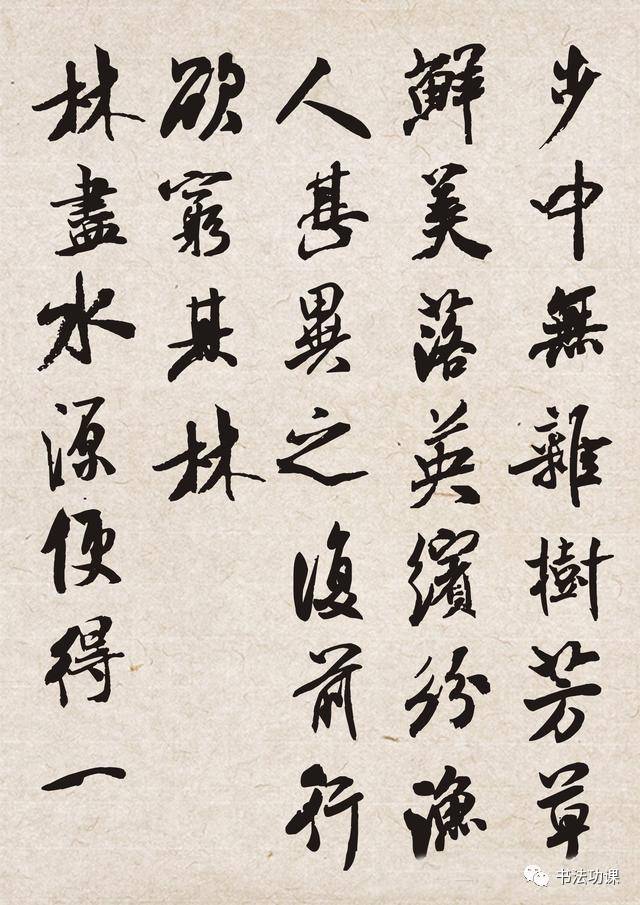 步中無雜樹芳草
鮮美落英繽紛漁
人甚異之復前行
欲窮其林
林盡水源便得一
书法功课